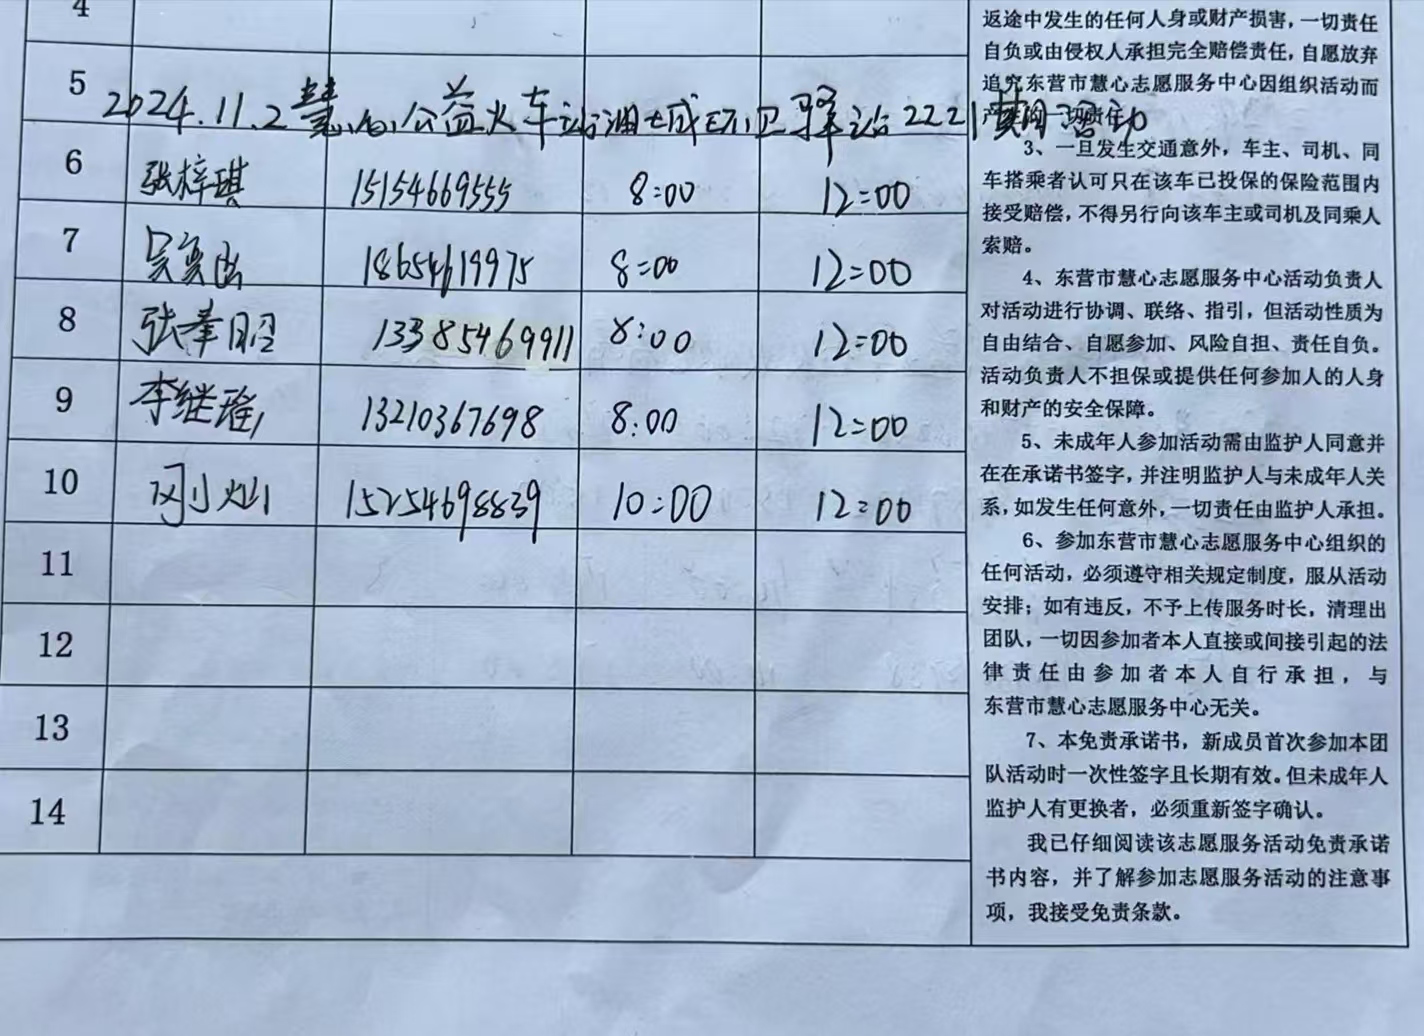 4
5
2024.11.2慧心公益火车站油城环卫驿站2221期活动
6 张梓琪 15154669555 8:00 12:00
7 18654619975 8:00 12:00
8 张孝昭 13385469911 8:00 12:00
9 李继瑶 13210367698 8:00 12:00
10 小灿 15254698839 10:00 12:00
11
12
13
14
返途中发生的任何人身或财产损害，一切责任
自负或由侵权人承担完全赔偿责任，自愿放弃
追究东营市慧心志愿服务中心因组织活动而
产生的一切责任。
3、一旦发生交通意外，车主、司机、同
车搭乘者认可只在该车已投保的保险范围内
接受赔偿，不得另行向该车主或司机及同乘人
索赔。
4、东营市慧心志愿服务中心活动负责人
对活动进行协调、联络、指引，但活动性质为
自由结合、自愿参加、风险自担、责任自负。
活动负责人不担保或提供任何参加人的人身
和财产的安全保障。
5、未成年人参加活动需由监护人同意并
在在承诺书签字，并注明监护人与未成年人关
系，如发生任何意外，一切责任由监护人承担。
6、参加东营市慧心志愿服务中心组织的
任何活动，必须遵守相关规定制度，服从活动
安排；如有违反，不予上传服务时长，清理出
团队，一切因参加者本人直接或间接引起的法
律责任由参加者本人自行承担，与
东营市慧心志愿服务中心无关。
7、本免责承诺书，新成员首次参加本团
队活动时一次性签字且长期有效。但未成年人
监护人有更换者，必须重新签字确认。
我已仔细阅读该志愿服务活动免责承诺
书内容，并了解参加志愿服务活动的注意事
项，我接受免责条款。